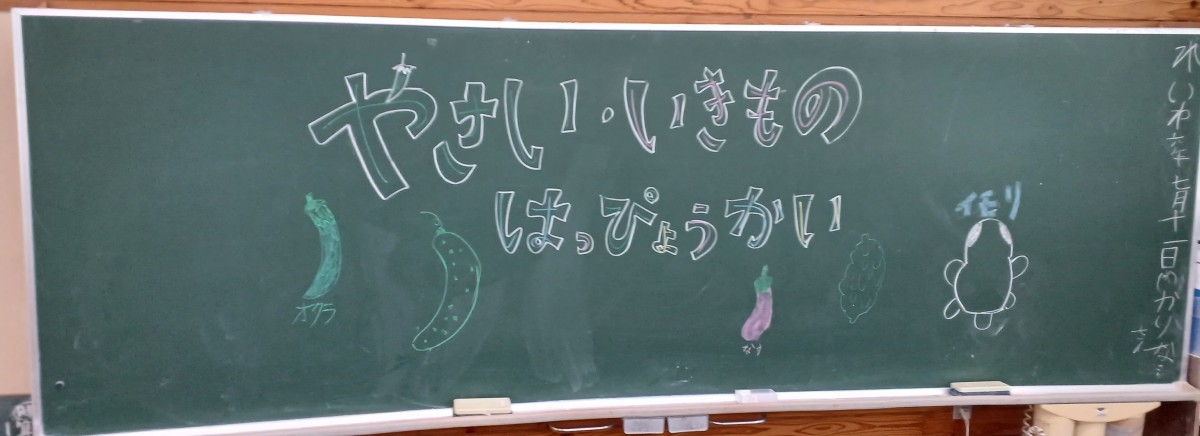 やさい・いきもの
はっぴょうかい
オクラ
なす
イモリ
れいわ六年七月十一日